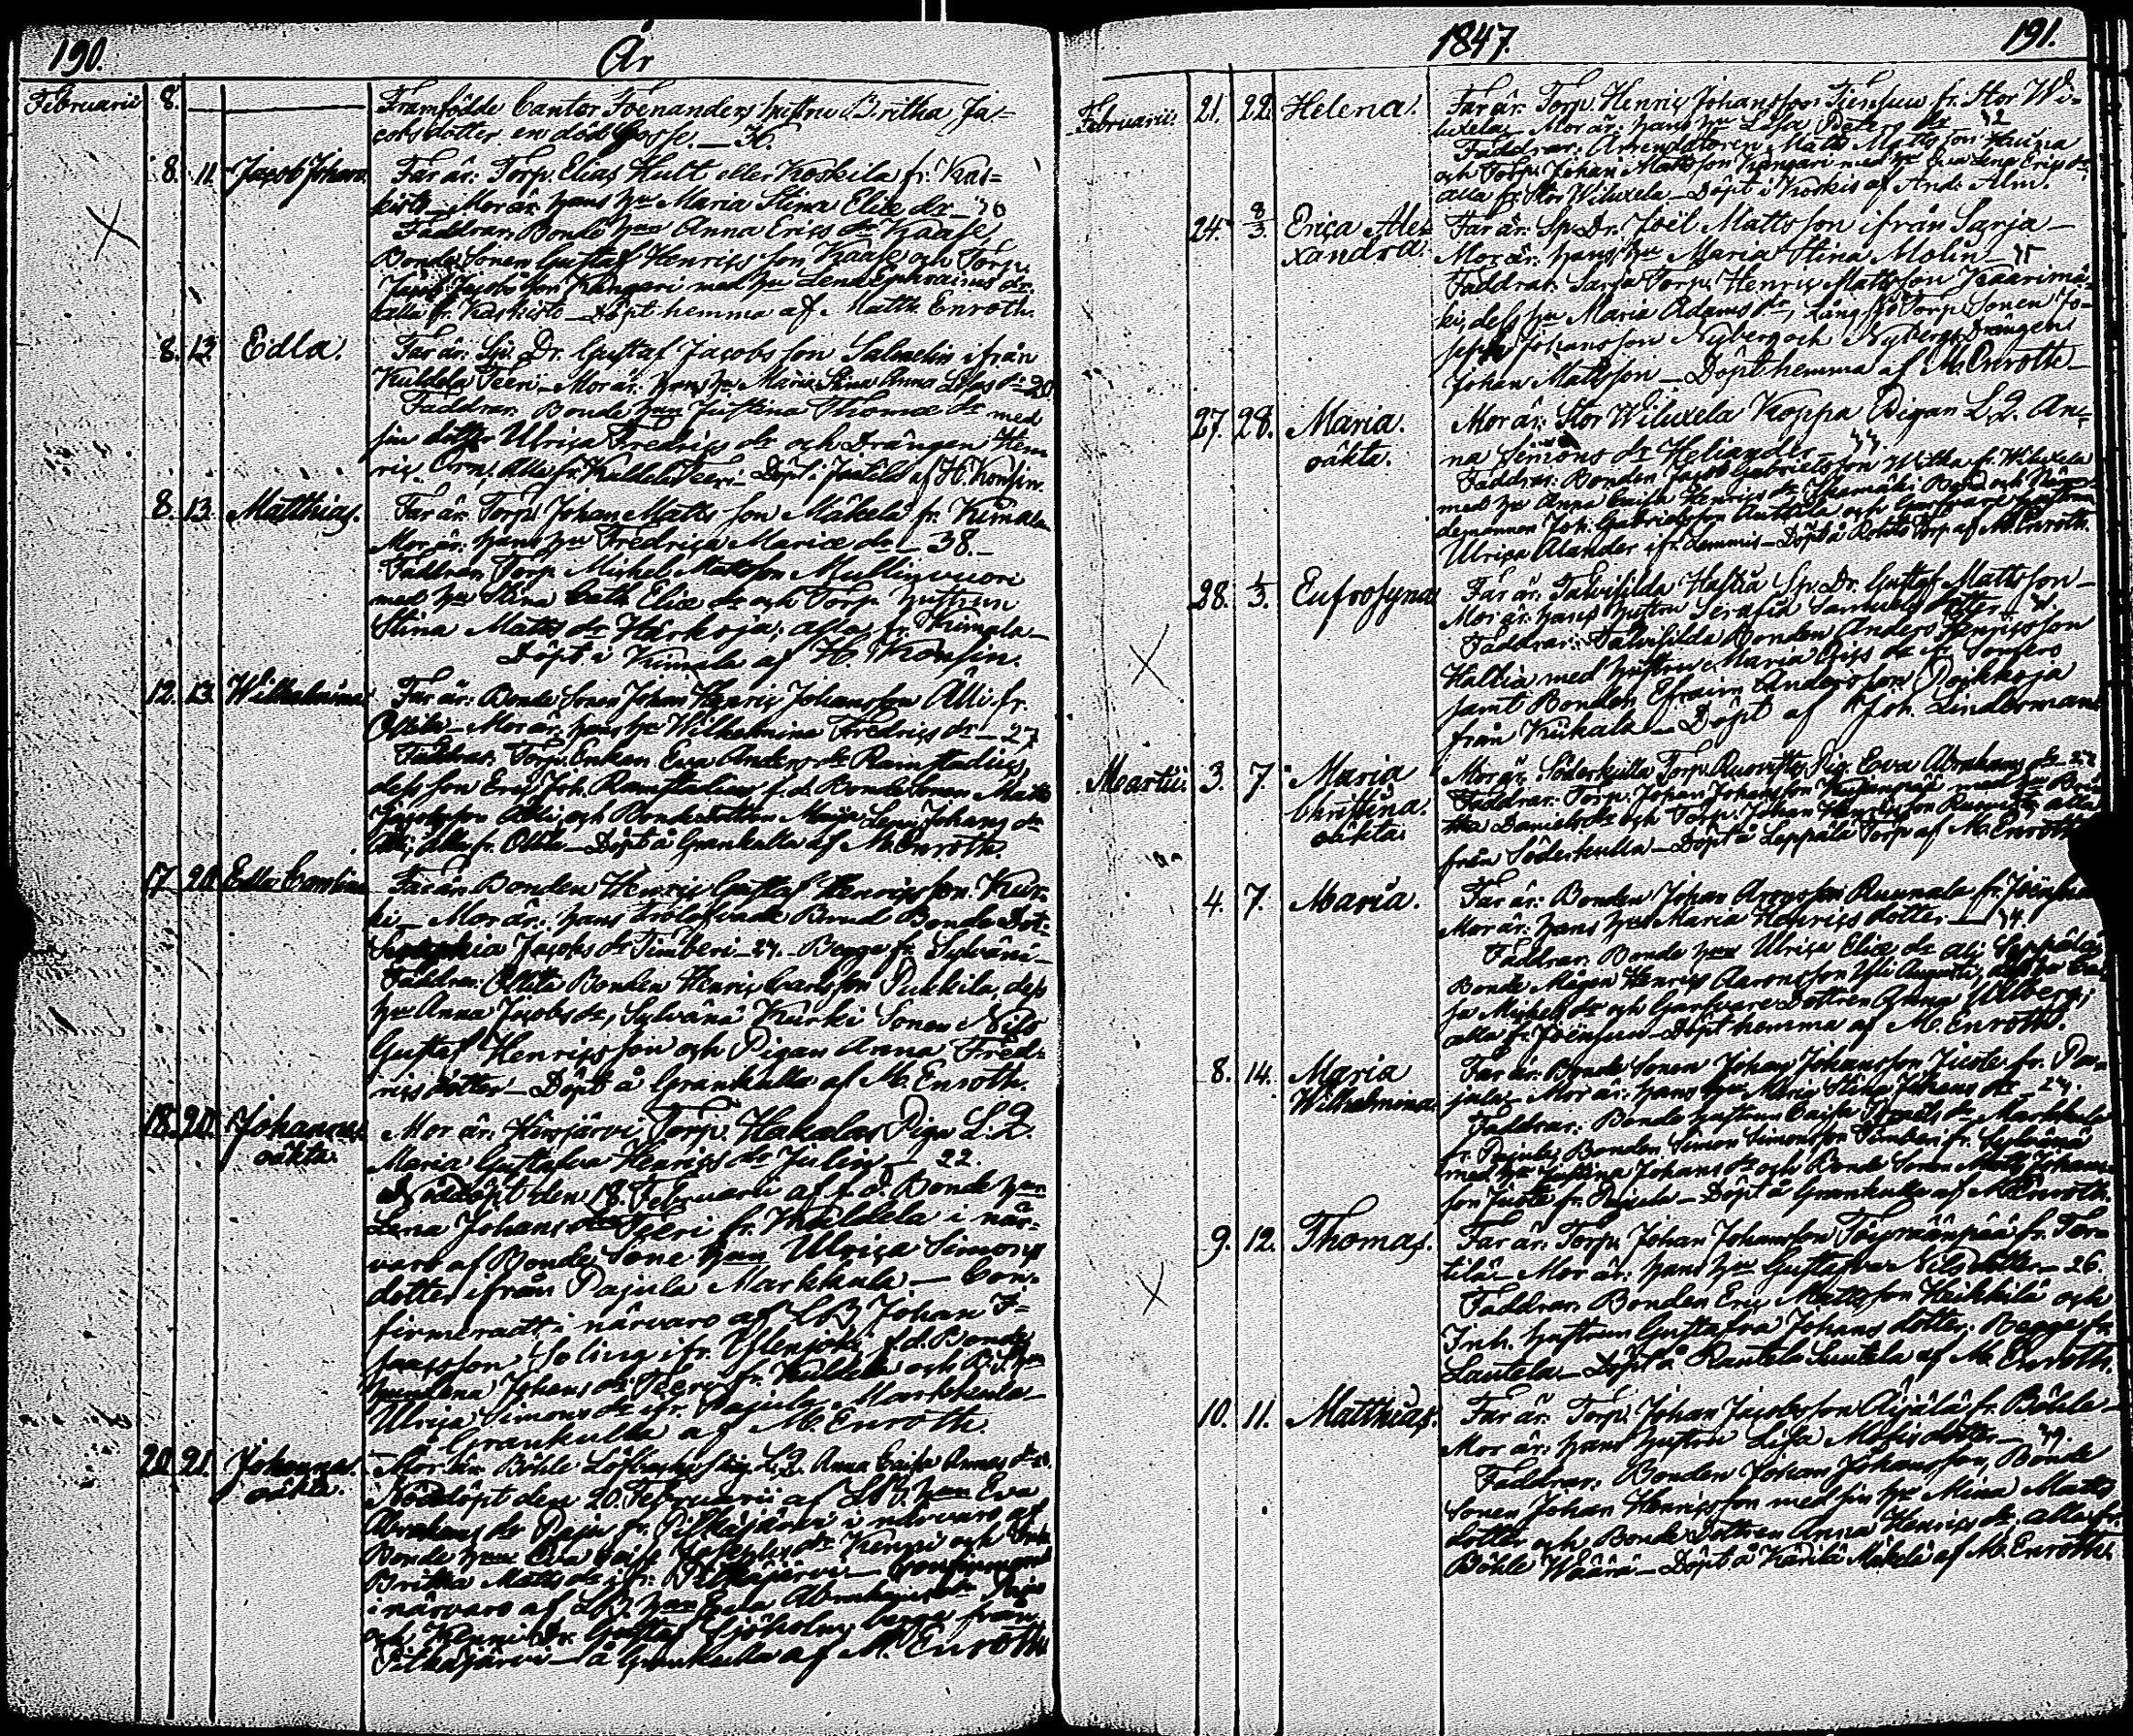 190.
År
Februarii 8. Framfödde Cantor Foenanders hustru Britha Ja-
cobsdotter en död Gosse. — 36.
8. 11. Jacob Johan. Far är: Torp. Elias Hult eller Koskila fr. Kas-
kisto — Mor är: hans hu Maria Stina Eliæ dr —
Faddrar: Bonde hun Anna Erics dr Kaase,
Bonde Sonen Gustaf Henrics son Kaase och Torp.
Jacob Jacobs son Kangari med hu Lena Ephraims dr
alla fr. Kaskisto — Döpt hemma af Matth. Enroth.
8. 13. Edla. Far är: Sp. Dr. Gustaf Jacobs son Salmelin ifrån
Kuldela Teeri — Mor är: hans hu Maria Stina Anna dr 20
Faddrar: Bonde hun Justina Thomæ dr med
sin dotter Ulrica Fredrics dr och Drängen Hen
ric alla fr. Kuldela Teeri — Döpt i af H. Konsin.
8. 13. Matthias. Far är: Torp. Johan Matts son Mäkelä fr. Kimala
Mor är: hans hu Fredrica Mariæ dr — 38. —
Faddrar: Torp. Michel Mattsson Myllinvuori
med hu Stina Cath. Eliæ dr och Torp. hustrun
Stina Matts dr Härkoja; alla fr. Kimala —
Döpt i Kimala af H. Konsin.
12. 13. Wilhelmina. Far är: Bonde Sonen Johan Henric Johansson Alli fr.
Ollila — Mor är: hans hu Wilhelmina Fredrics dr — 27
Faddrar: Torp. Enkan Eva Anders dr Ramstadius,
dess son Eric Joh. Ramstadius f.d. Bonde Sonen Matts
Jacobsson Alli och Bonde Dottren Maja Lena Johans dr
Alli; Alla fr. Ollila — Döpt å Grankulla af M. Enroth.
17. 20. Edla Carolina. Far är: Bonden Henric Gustaf Henrics son Kur-
ki — Mor är: hans Trolofvade Brud Bonde Dot:
Sophia Jacobs dr Timberi — 24. — Begge fr. Sylvänä —
Faddrar: Ollila Bonden Henric Carlsson Pukkila, dess
hu Anna Jacobs dr, Sylvänä Kurki Sonen Nils
Gustaf Henricsson och Pigan Anna Fred-
rics dotter — Döpt å Grankulla af M. Enroth.
18. 20. Johannes. Mor är: Hirsjärvi Torp. Hakalas Piga L. Q.
oäkta. Maria Gustafva Henrics dr Julin — 22.
Nöddöpt den 18. Februarii af f.d. Bonde hun
Lena Johans dr Teeri fr. Kuldela i när-
varo af Bonde Sone hun Ulrica Simons
dotter ifrån Pajula Markkula — Con-
firmeradt i närvaro af LB. Johan I-
saacsson Soling ifr. Ylenjoki, f.d. Bonde
hun Lena Johans dr Teeri fr. Kuldela och B. S. hun
Ulrica Simons dr ifr. Pajula Markkula —
å Grankulla af M. Enroth.
20. 21. Johannes. Mor är: Böhle Löfbacks Pig. L. Q. Anna Caisa Annas dr
oäkta. Nöddöpt den 20. Februarii af LB. hun Eva
Abrahams dr Paju fr. Pitkäjärvi i närvaro af
Bonde hun Eva Caisa Josephs dr Kenni och Inh.
Britha Matts dr ifr. Pitkäjärvi — Confirmerad
i närvaro af LB. hun Eva Abrahams dr Paju
och Kenni Dr. Gustaf Sjöholm, begge från
Pitkäjärvi — å Grankulla af M. Enroth
1847.
191.
Februarii 21. 22. Helena. Far är: Torp. Henric Johansson Tjensuu fr. Stor Wi-
luxela — Mor är: hans hu Lisa Peters dr 42
Faddrar: Arrendatoren Matts Mattsson Hauria
och Torp. Johan Mattsson Kangari med hu Eva Lena Erics dr
alla fr. Stor Wiluxela — Döpt i Koskis af And. Alm.
24. 8/3. Erica Ale- Far är: Sp. Dr. Joël Mattsson ifrån Sarja —
xandra. Mor är: hans hu Maria Stina Molin —
Faddrar: Sarja Torp. Henric Mattsson Kaarimä-
ki, dess hu Maria Adams dr, Långsjö Torp. Sonen Jo-
seph Johansson Nyberg och Nybergs Drängen
Johan Mattsson — Döpt hemma af M. Enroth —
27. 28. Maria. Mor är: Stor Wiluxela Koppa Pigan L. Q. An-
oäkta. na Simons dr Heliander —
Faddrar: Bonden Jacob Gabrielsson fr. Wiluxela
med hu Anna Caisa Henrics dr, och Näm-
demannen Joh. Gabrielsson Anttila och Garfvare hustrun
Ulrica Alander ifr. — Döpt å Torp af M. Enroth.
28. 1/3. Eufrosyna. Far är: Talvisilda Hastia Sp. Dr. Gustaf Mattsson —
Mor är: hans hustru Serafia Samuels dotter —
Faddrar: Talvisilda Bonden Anders Henricsson
Hallia med hustru Maria dr fr. Somero
samt Bonden Efraim Andersson Poikkoja
från Kiikala — Döpt af Joh. Lindbermans
Martii. 3. 7. Maria Mor är: Söderkulla Torp. Pig. Eva Abrahams dr 27
Christina. Faddrar: Torp. Johan Johansson med hu Bri-
oäkta. tha Daniels dr och Torp. Johan Henricsson alla
från Söderkulla — Döpt å Leppälä Torp af M. Enroth
4. 7. Maria. Far är: Bonden Johan Aronsson Runnala fr. Joensuu
Mor är: hans hu Maria Henrics dotter — 44.
Faddrar: Bonde hun Ulrica Eliæ dr Ali Seppälä;
Bonde Mågen Henric Aaronsson Yli Augusti, dess hu Cai-
sa Michels dr och Garfvare Dottren Anna Ullberg;
alla fr. Joensuu — Döpt hemma af M. Enroth.
8. 14. Maria Far är: Bonde Sonen Johan Johansson Juste fr. Pa-
Wilhelmina. jula — Mor är: hans hu Maria Stina Johans dr — 24.
Faddrar: Bonde hustrun Caisa dr Markkula
fr. Pajula, Bonden Simon Simonsson Timberi fr. Sylvänä
med hu Justina Johans dr och Bonde Sonen Matts Johans-
son Juste fr. Pajula — Döpt å Grankulla af M. Enroth.
9. 12. Thomas. Far är: Torp. Johan Johansson Töyräänpää fr. Tor-
tilä — Mor är: hans hu Gustafva Nils dotter — 26.
Faddrar: Bonden Eric Mattsson Heikkilä och
Inh. hustrun Gustafva Johans dotter: Begge fr.
Lautela — Döpt å Rautela Lautela af M. Enroth.
10. 11. Matthias. Far är: Torp. Johan Jacobsson Äijälä fr. Böhle —
Mor är: hans hustru Lisa Matts dotter — 49.
Faddrar: Bonden Johan Johansson, Bonde
Sonen Johan Henricsson med sin hu Mina Matts
dotter och Bonde Dottren Anna Henrics dr alla fr.
Böhle Wäärä — Döpt å Kärilä Mäkelä af M. Enroth.